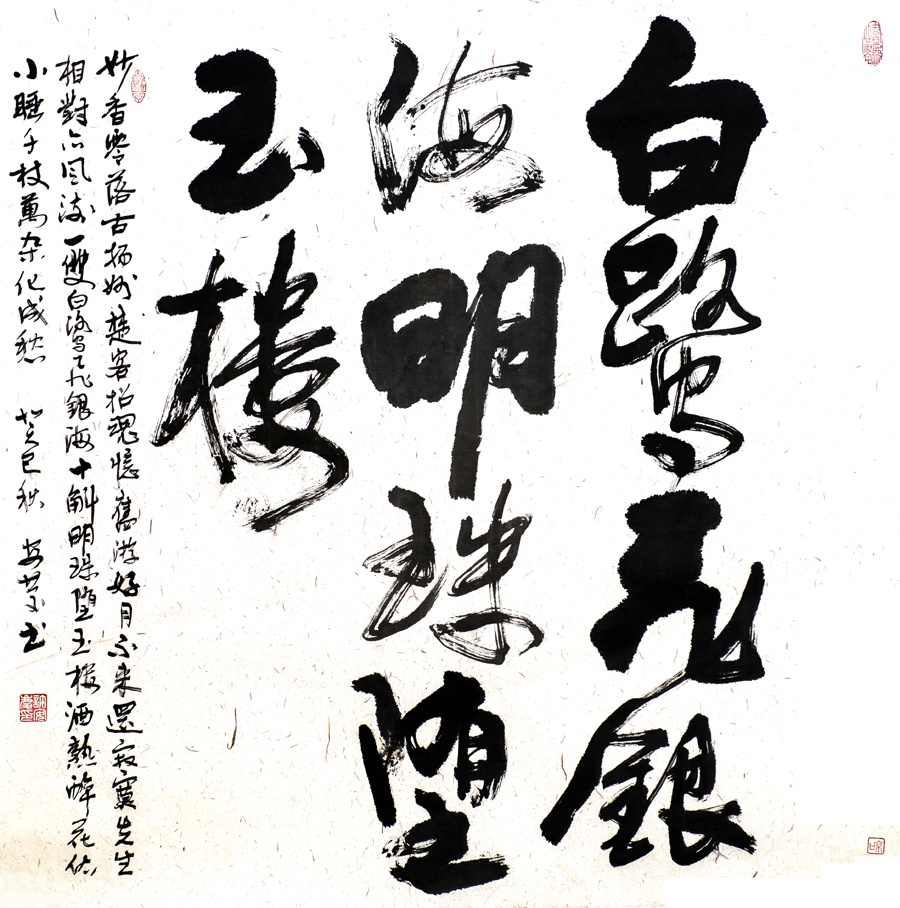 白鷺飛銀
海明珠墮
玉樓
妙香零落古揚州楚客招魂憶舊游好月不來還寂寞先生
相對亦風流一雙白鷺飛銀海十斛明珠墮玉樓酒熟醉花休
小睡千枝萬朵化成愁 癸巳秋